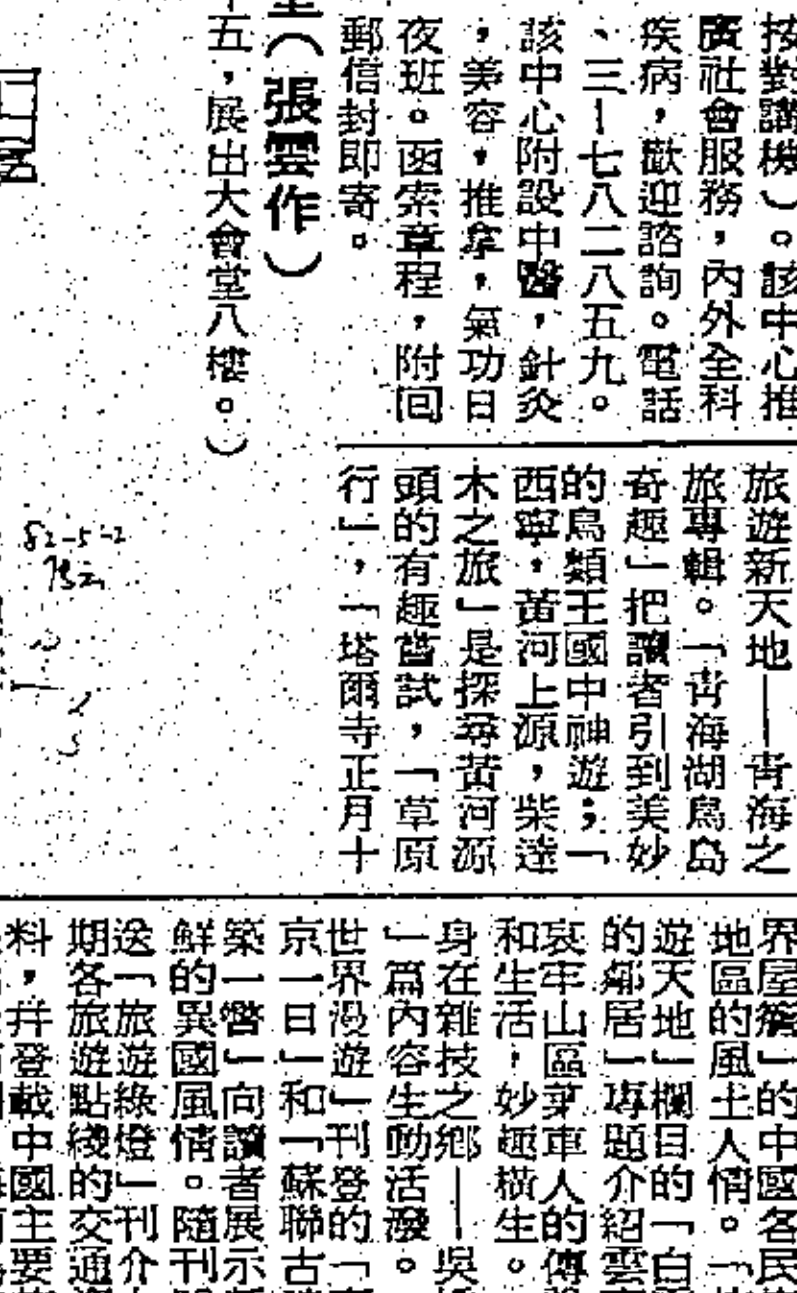 按對講機)。該中心推
廣社會服務,內外全科
疾病,歡迎諮詢。電話
、三—七八二八五九。
該中心附設中醫,針灸
,美容,推拿,氣功日
夜班。函索章程,附回
郵信封即寄。
(張雲作)
五,展出大會堂八樓。)
旅遊新天地——青海之
旅專輯。「青海湖鳥島
奇趣」把讀者引到美妙
的鳥類王國中神遊;「
西寧,黃河上源,柴達
木之旅」是探尋黃河源
頭的有趣嘗試,「草原
行」,「塔爾寺正月十
82-5-2
界屋簷」的中國各民
地區的風土人情。「
遊天地」欄目的「白
的鄰居」專題介紹雲
哀牢山區車人的傳
和生活,妙趣橫生。
身在雜技之鄉——吳
」篇內容生動活潑。
世界漫遊」刊登的「
京一日」和「蘇聯古
築一瞥」向讀者展示
鮮的異國風情。隨刊
送「旅遊綠燈」刊介
期各旅遊點綫的交通
料,并登載中國主要